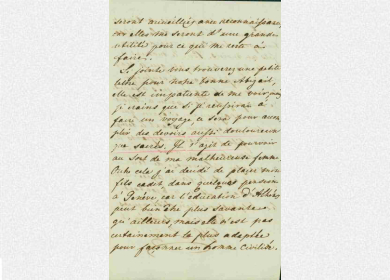 seront accueillies avec reconnaissance
car elles me seront d'une grande
utilité pour ce qui me reste à
faire.
Ci jointe vous trouverez une petite
lettre pour notre bonne
elle est impatiente de me voir, mais
je crains que si je réussirai à
faire un voyage, ce sera pour avoir
plus des devoirs aussi douloureux
que sacrés. Il s'agit de pourvoir
au sort de ma malheureuse femme.
Outre cela j'ai decidé de placer mon
fils cadet dans quelque pension
à Genève car l'education d'
peut bien être plus savante
qu'ailleurs, mais elle n'est pas
certainement la plus adaptée
pour façonner un homme civilisé.